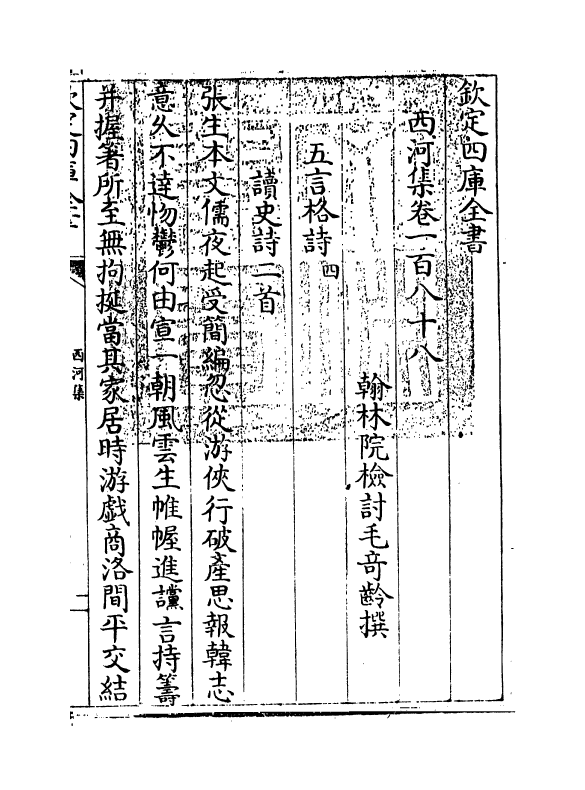 欽定四庫全書
西河集卷一百八十八
翰林院檢討毛竒齡撰
五言格詩四
讀史詩二首
張生本文儒夜起受簡編忽從游俠行破產思報韓志
意久不達怫鬱何由宣一朝風雲生帷幄進讜言持籌
并握箸所至無拘挻當其家居時游戲商洛間平交結
西河集